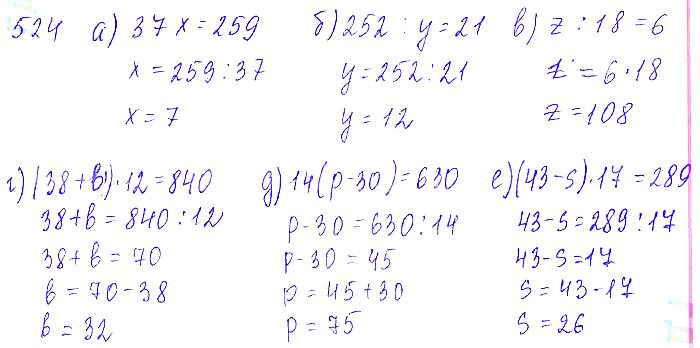 524 а) 37x=259 б) 252 : y=21 в) z : 18=6
x=259:37 y=252:21 z=6·18
x=7 y=12 z=108
г) (38+в)·12=840 д) 14(p-30)=630 е) (43-s)·17=289
38+в=840:12 p-30=630:14 43-s=289:17
38+в=70 p-30=45 43-s=17
в=70-38 p=45+30 s=43-17
в=32 p=75 s=26